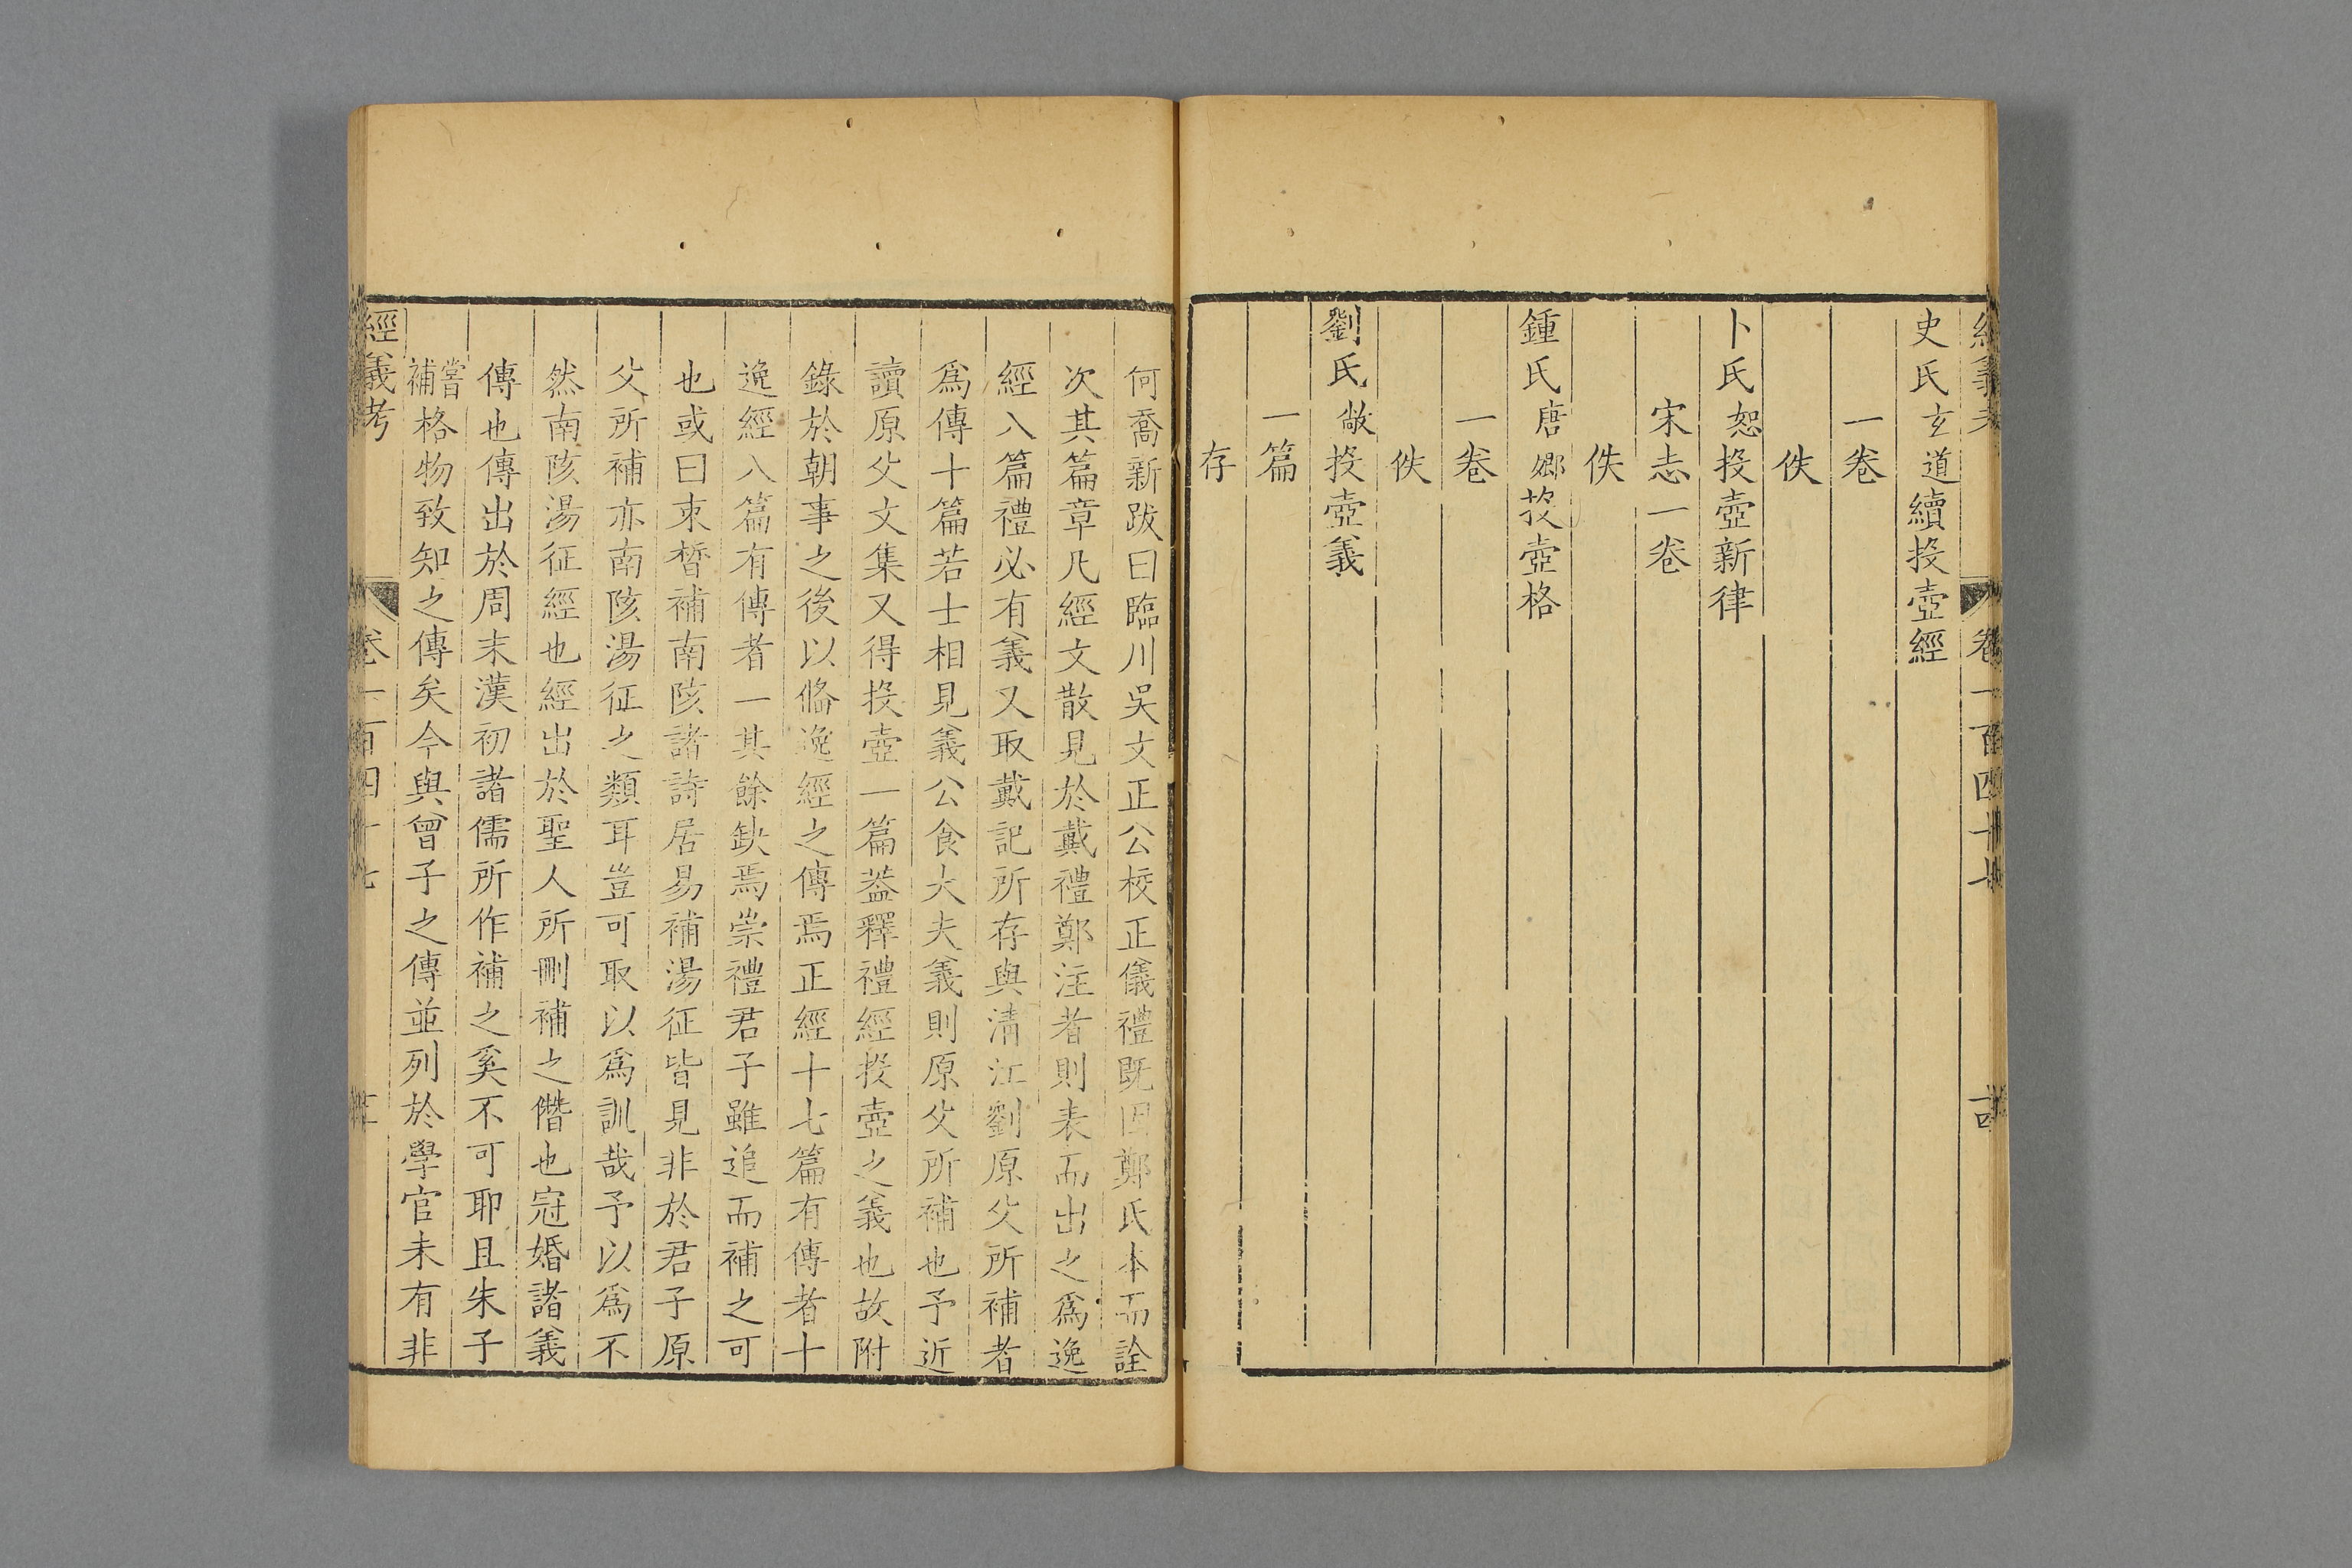 經義考 卷一百四十七 十四
史氏玄道續投壺經
一卷
佚
卜氏恕投壺新律
宋志一卷
佚
鍾氏唐卿投壺格
一卷
佚
劉氏敞投壺義
一篇
存
何喬新跋曰臨川吳文正公校正儀禮既因鄭氏本而詮
次其篇章凡經文散見於戴禮鄭注者則表而出之爲逸
經八篇禮必有義又取戴記所存與清江劉原父所補者
爲傳十篇若士相見義公食大夫義則原父所補也予近
讀原父文集又得投壺一篇葢釋禮經投壺之義也故附
錄於朝事之後以俻逸經之傳焉正經十七篇有傳者十
逸經八篇有傳者一其餘缺焉崇禮君子雖追而補之可
也或曰束晳補南陔諸詩居易補湯征皆見非於君子原
父所補亦南陔湯征之類耳豈可取以爲訓哉予以爲不
然南陔湯征經也經出於聖人所刪補之僭也冠婚諸義
傳也傳出於周末漢初諸儒所作補之奚不可耶且朱子
嘗補格物致知之傳矣今與曾子之傳並列於學官未有非
經義考 卷一百四十七